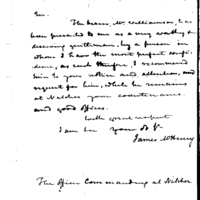 Sir.
The bearer, Mr Williamson, has
been presented to me as a very worthy &
deserving gentleman, by a person in
whom I have the most perfect confi-
dence, as such therefore, I recommend
him to your notice and attention, and
request for him, while he remains
at Natchez your countenance
and good offices.
With great respect
I am Sir your
James McHenry
The Officer Commanding at Natchez